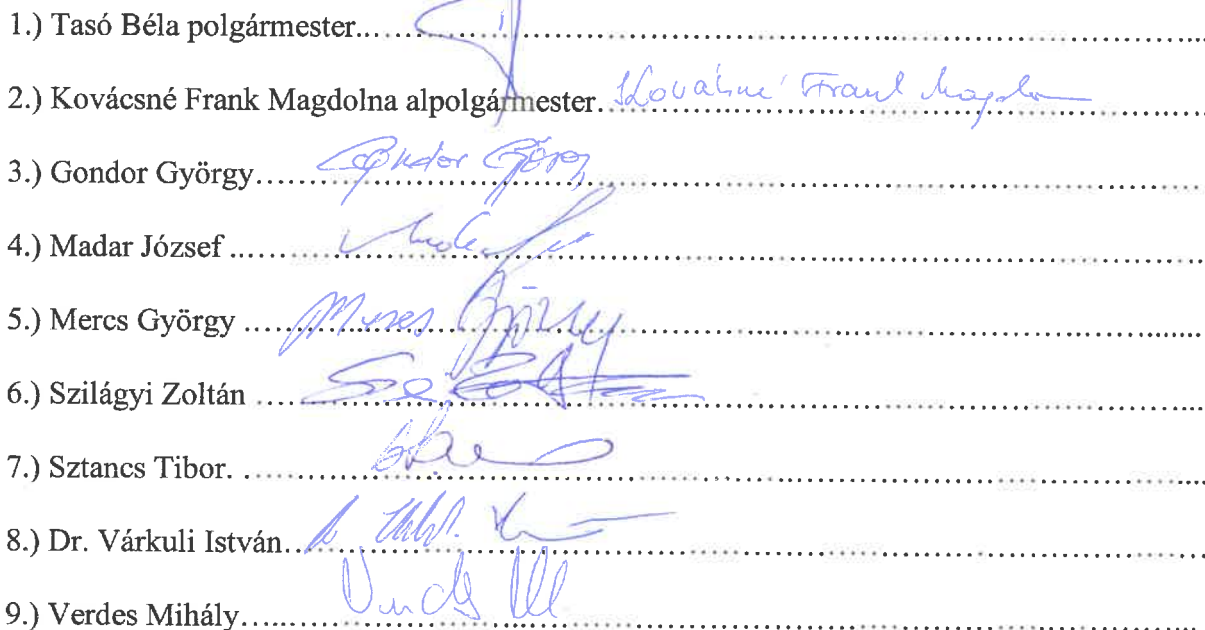 1.) Tasó Béla polgármester..............................
2.) Kovácsné Frank Magdolna alpolgármester. Kovácsné Frank Magdolna
3.) Gondor György.............. Gondor György
4.) Madar József ..............................
5.) Mercs György .............. Mercs György
6.) Szilágyi Zoltán ..............................
7.) Sztancs Tibor. ..............................
8.) Dr. Várkuli István..............................
9.) Verdes Mihály..............................